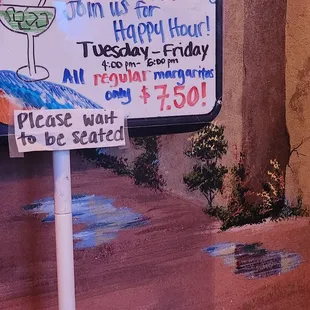 Join us for
Happy Hour!
Tuesday-Friday
4:00 pm - 6:00 pm
All regular margaritas
only $7.50!
Please wait
to be seated